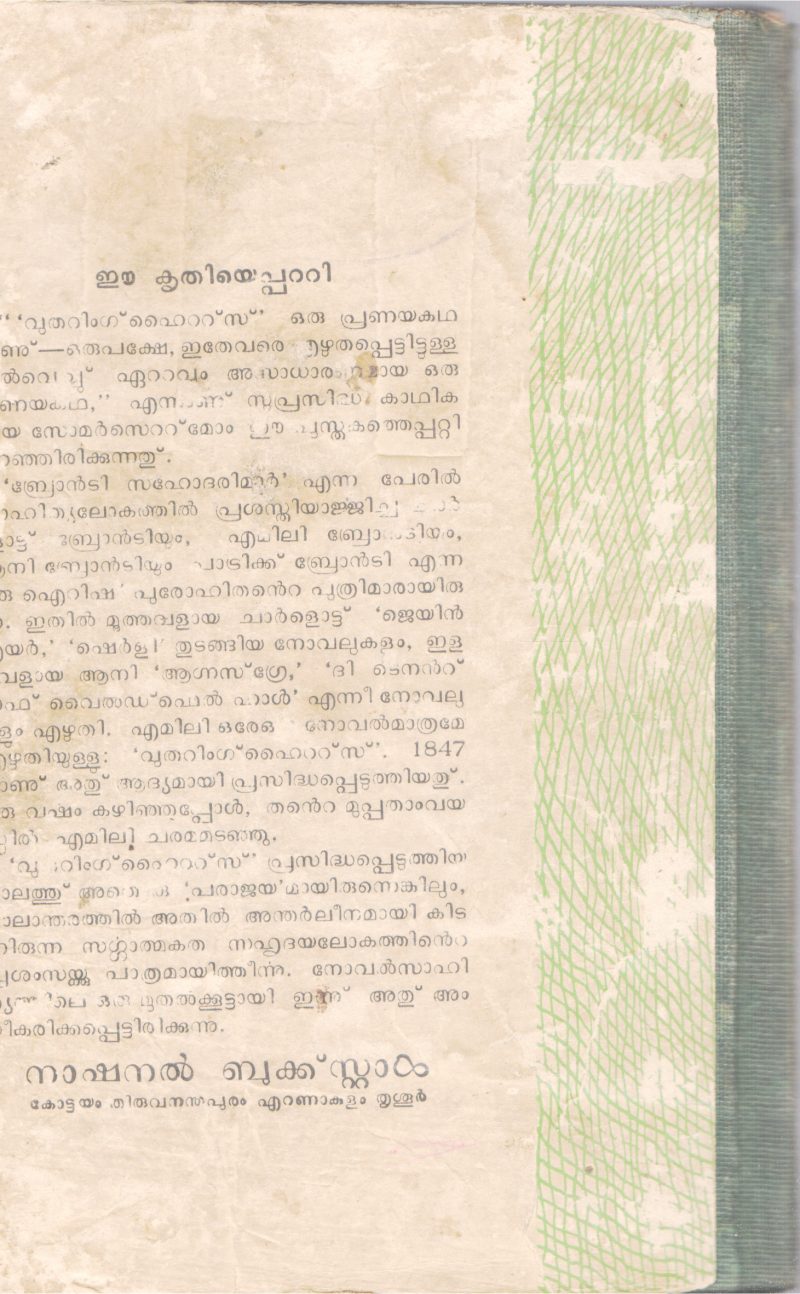 ഈ കൃതിയെപ്പററി
“‘വുതറിംഗ്ഹൈററ്സ്’ ഒരു പ്രണയകഥ
ണ്—ഒരുപക്ഷേ, ഇതേവരെ എഴുതപ്പെട്ടിട്ടുള്ള
ഏററവും അസാധാരണമായ ഒരു
ണയകഥ,” എന്നാണ് സുപ്രസിദ്ധ കാഥിക
യ സോമർസെററ്മോം ഈ പുസ്തകത്തെപ്പററി
റഞ്ഞിരിക്കുന്നതു്.
‘ബ്രോൻടി സഹോദരിമാർ’ എന്ന പേരിൽ
ാഹിത്യലോകത്തിൽ പ്രശസ്തിയാജ്ജിച്ച
ട്ട് ബ്രോൻടിയും, എമിലി ബ്രോൻടിയും,
നി ബ്രോൻടിയും പാട്രിക്ക് ബ്രോൻടി എന്ന
രു ഐറിഷ് പുരോഹിതൻെറ പുത്രിമാരായിരു
. ഇതിൽ മൂത്തവളായ ചാർളൊട്ട് ‘ജെയിൻ
യർ,’ ‘ഷെർളി’ തുടങ്ങിയ നോവലുകളും, ഇള
വളായ ആനി ‘ആഗ്നസ്ഗ്രേ,’ ‘ദി ടെനൻറ്
ഫ് വൈൽഡ്ഫെൽ ഹാൾ’ എന്നീ നോവലു
ളും എഴുതി. എമിലി ഒരേഒരു നോവൽമാത്രമേ
ഴുതിയുള്ളൂ: ‘വുതറിംഗ്ഹൈററ്സ്’. 1847
ാണ് അതു് ആദ്യമായി പ്രസിദ്ധപ്പെടുത്തിയതു്.
രു വഷം കഴിഞ്ഞപ്പോൾ, തൻെറ മുപ്പതാംവയ
ിൽ എമിലി ചരമമടഞ്ഞു.
‘വുതറിംഗ്ഹൈററ്സ്’ പ്രസിദ്ധപ്പെടുത്തിയ
ാലത്തു് അതൊരു ‘പരാജയ’മായിരുന്നെങ്കിലും,
ാലാന്തരത്തിൽ അതിൽ അന്തർലീനമായി കിട
ിരുന്ന സഗ്ഗാത്മകത സഹൃദയലോകത്തിൻെറ
്രശംസയ്ക്കു പാത്രമായിത്തീന്നു. നോവൽസാഹി
ഒരു മുതൽക്കൂട്ടായി ഇന്ന് അതു് അം
ീകരിക്കപ്പെട്ടിരിക്കുന്നു.
നാഷനൽ ബുക്ക്സ്റ്റാൾ
കോട്ടയം തിരുവനന്തപുരം എറണാകുളം തൃശൂർ